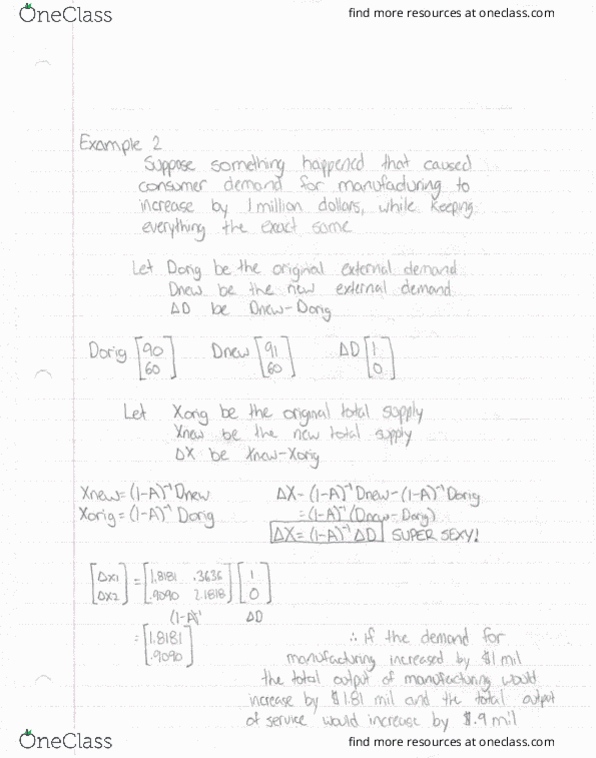 OneClass find more resources at oneclass.com
Example 2
Suppose something happened that caused
consumer demand for manufacturing to
increase by 1 million dollars, while keeping
everything the exact same
Let Dorig be the original external demand
Dnew be the new external demand
ΔD be Dnew-Dorig
Dorig [90 60] Dnew [91 60] ΔD [1 0]
Let Xorig be the original total supply
Xnew be the new total supply
ΔX be Xnew-Xorig
Xnew = (1-A)⁻¹ Dnew ΔX- (1-A)⁻¹ Dnew - (1-A)⁻¹ Dorig
Xorig = (1-A)⁻¹ Dorig = (1-A)⁻¹ (Dnew - Dorig)
ΔX = (1-A)⁻¹ ΔD SUPER SEXY!
[Δx1 Δx2] = [1.8181 .3636 .9090 2.1818] [1 0]
(1-A)⁻¹ ΔD
= [1.8181 .9090] ∴ if the demand for
manufacturing increased by $1 mil
the total output of manufacturing would
increase by $1.81 mil and the total output
of service would increase by $.9 mil
OneClass find more resources at oneclass.com